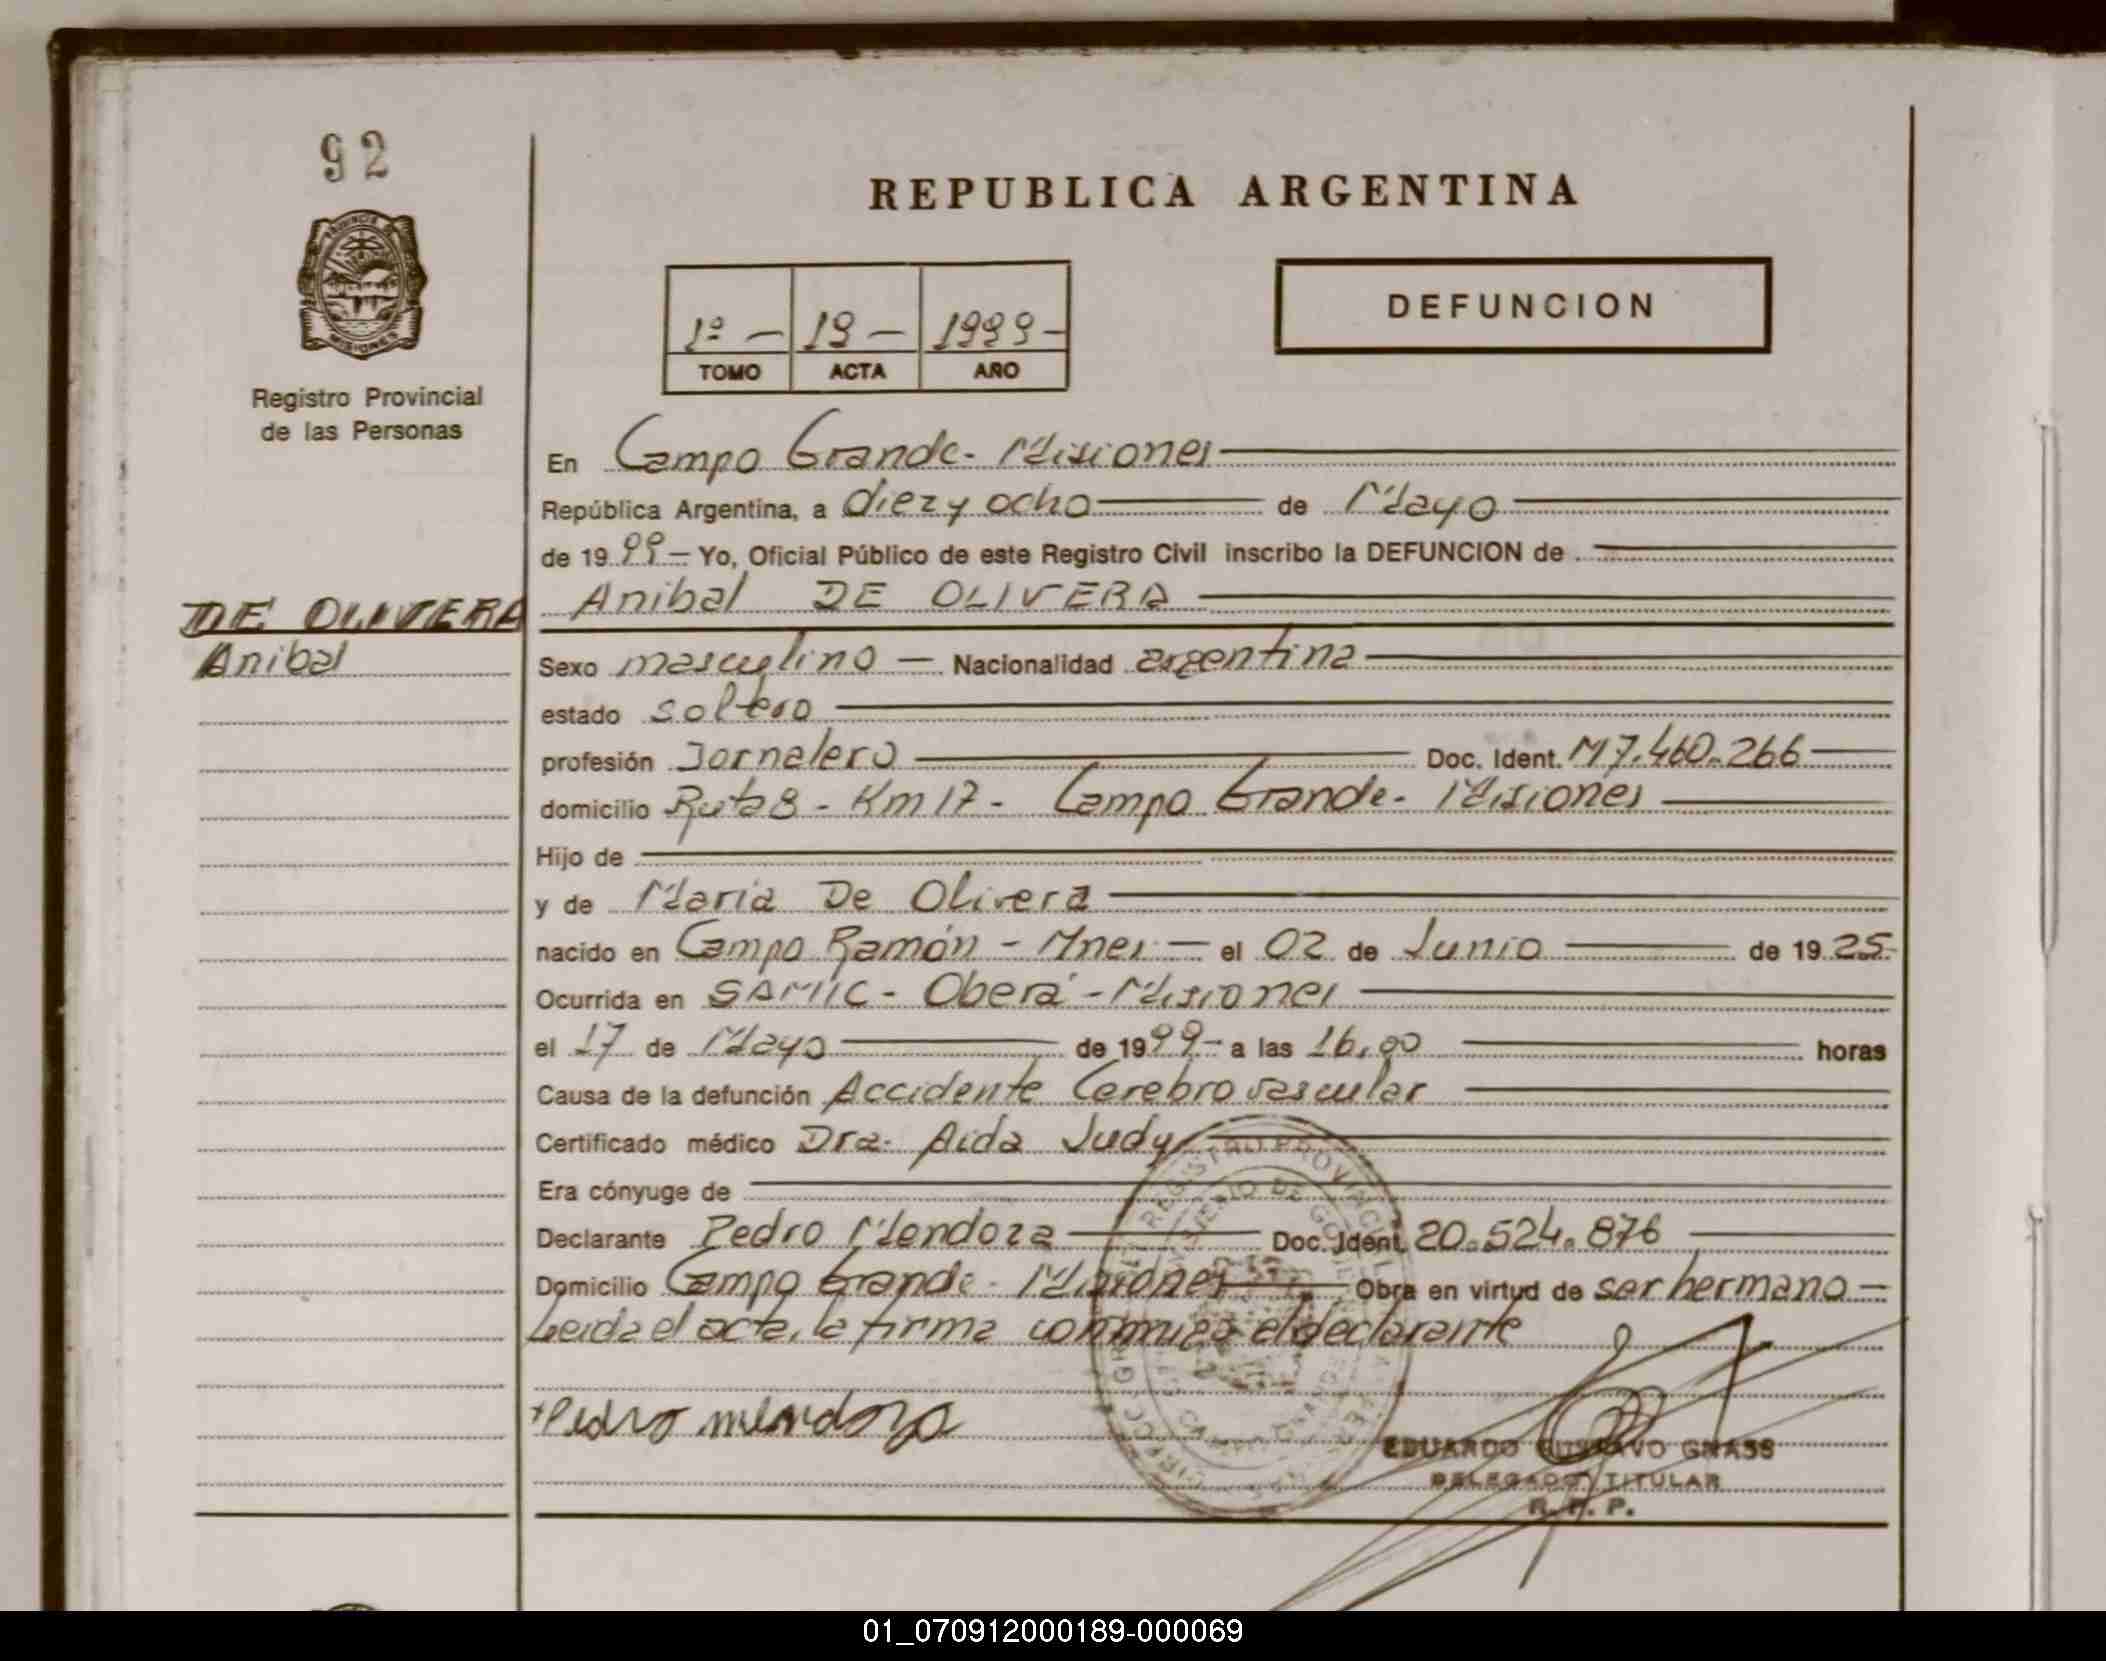 92
PROVINCIA DE
MISIONES
Registro Provincial
de las Personas
DE OLIVERA
Anibal
REPUBLICA ARGENTINA
1º — 19 — 1999 —
TOMO ACTA AÑO
DEFUNCION
En Campo Grande - Misiones
República Argentina, a diez y ocho de Mayo
de 1999 — Yo, Oficial Público de este Registro Civil inscribo la DEFUNCION de
Anibal DE OLIVERA
Sexo masculino — Nacionalidad argentina
estado soltero
profesión Jornalero Doc. Ident. M7.460.266
domicilio Ruta 8 - Km 17 - Campo Grande - Misiones
Hijo de
y de Maria De Olivera
nacido en Campo Ramón - Mnes — el 02 de Junio de 1925
Ocurrida en SAMIC - Oberá - Misiones
el 17 de Mayo de 1999 - a las 16,00 horas
Causa de la defunción Accidente Cerebro vascular
Certificado médico Dra. Aida Judy
Era cónyuge de
Declarante Pedro Mendoza Doc. Ident. 20.524.876
Domicilio Campo Grande - Misiones Obra en virtud de ser hermano —
Leida el acta, la firma conmigo el declarante
Pedro mendoza
REGISTRO PROVINCIAL
MINISTERIO DE GOBIERNO
CAMPO GRANDE
EDUARDO GUSTAVO GNASS
DELEGADO TITULAR
R. P. P.
01_070912000189-000069